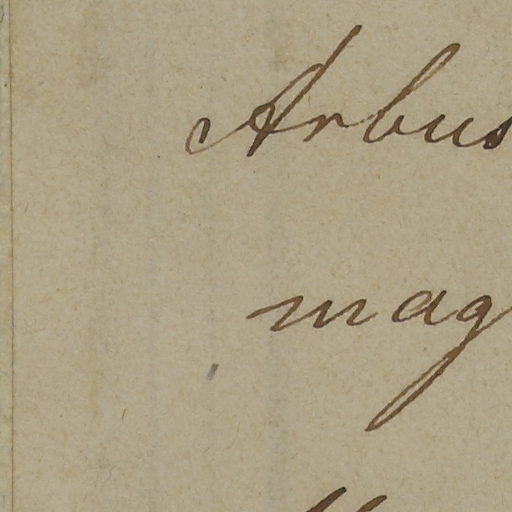 Arbus
mag